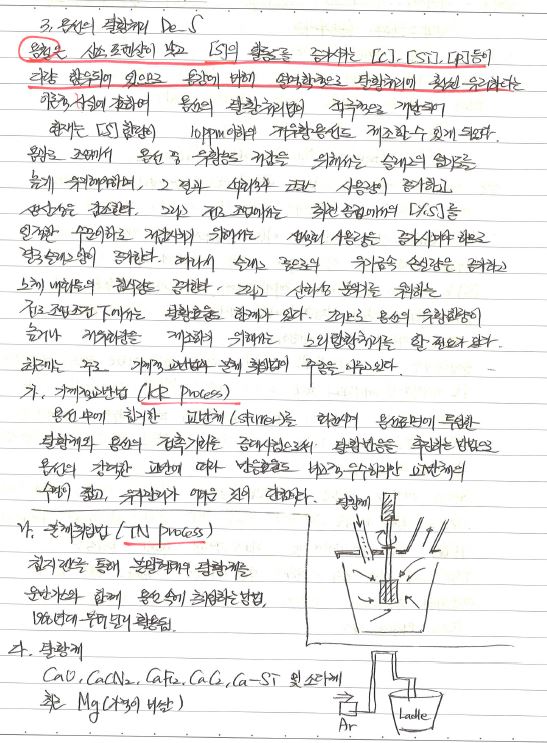 3. 용선의 탈황처리 De-S
용선은 산소 포텐샬이 낮고 [S]의 활동도를 증가시키는 [C], [Si], [P] 등이
다량 함유되어 있으므로 용강에 비해 열역학적으로 탈황처리에 훨씬 유리하다는
이론적 사실에 근거하여 용선의 탈황처리법이 적극적으로 개발되어
현재는 [S]함량이 10ppm이하의 저유황용선도 제조할 수 있게 되었다.
용광로 조업에서 용선 중 유황농도 저감을 위해서는 슬래그의 염기도를
높게 유지해야하며, 그 결과 석회석과 코크스 사용량이 증가하고
생산성은 감소한다. 그리고 전로 조업에서는 최전 종점에서의 [%S]를
일정한 수준이하로 저감하기 위해서는 생석회 사용량을 증가시켜야 하므로
전로슬래그양이 증가한다. 따라서 슬래그 중으로의 유가금속 손실량은 증가하고
노체 내화물의 침식량도 증가한다. 그리고 산화성 분위기를 유지하는
전로조업조건 下에서는 탈황효율도 한계가 있다. 그러므로 용선의 유황함량이
높거나 저유황강을 제조하기 위해서는 노외탈황처리를 할 필요가 있다.
최근에는 주로 기계적교반법과 분체취입법이 주종을 이루고 있다.
가. 기계적교반법 (KR process)
용선中에 침적한 교반체(stirrer)를 회전시켜 용선표면에 투입한
탈황제와 용선의 접촉기회를 증대시킴으로써 탈황반응을 촉진하는 방법으로
용선의 강력한 교반에 따라 반응효율도 비교적 우수하지만 교반체의
수명이 짧고, 유지관리가 어려운 것이 단점이다.
탈황제
나. 분체취입법 (TN process)
침지랜스를 통해 분말형태의 탈황제를
운반가스와 함께 용선속에 취입하는 방법,
다. 탈황제
CaO, CaCN2, CaF2, CaC2, Ca-Si 및 소다재
최근 Mg(가격이 비쌈)
Ar
Ladle